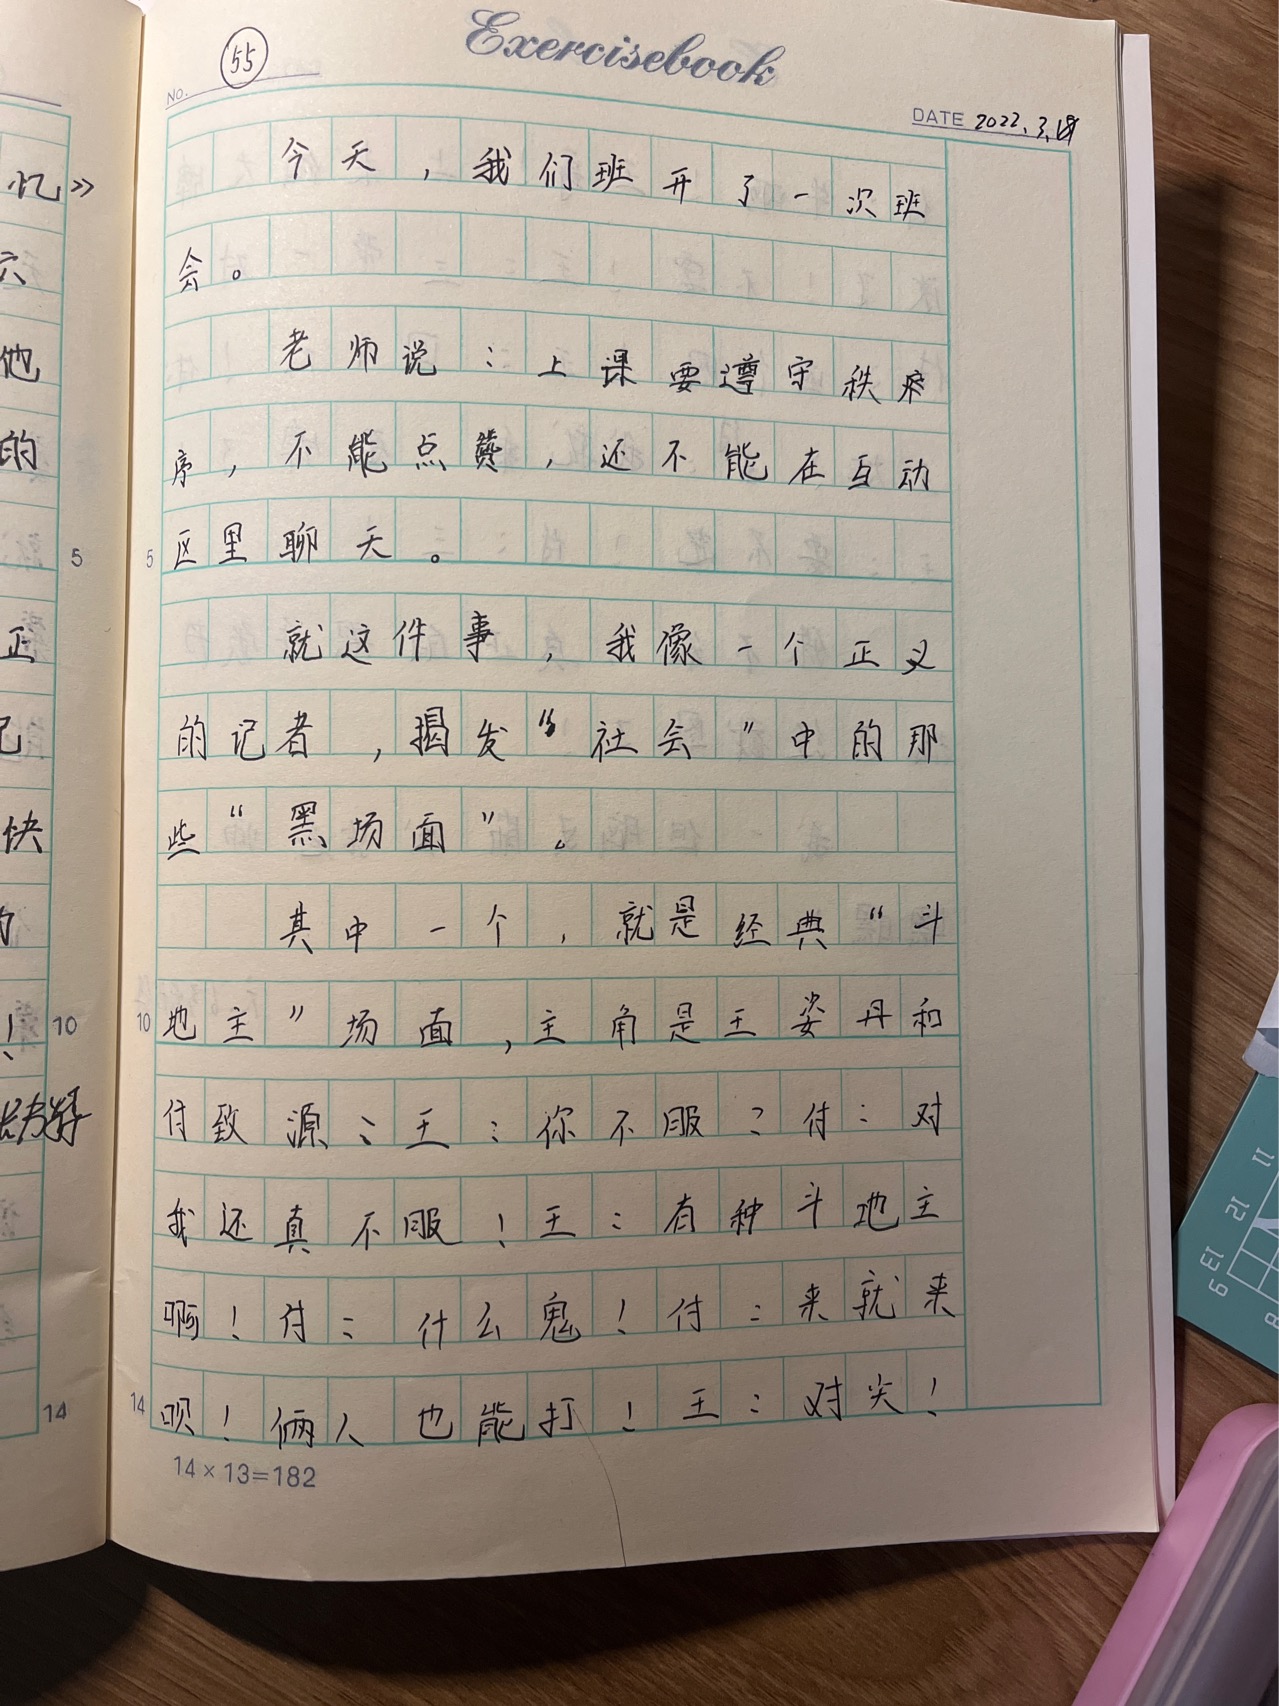 Exercisebook
No. 55
DATE 2022.3.
今天，我们班开了一次班
会。
老师说：上课要遵守秩
序，不能点赞，还不能在互动
区里聊天。
就这件事，我像一个正义
的记者，揭发“社会”中的那
些“黑场面”。
其中一个，就是经典“斗
地主”场面，主角是王姿丹和
付致源：王：你不服？付：对
我还真不服！王：有种斗地主
啊！付：什么鬼！付：来就来
呗！俩人也能打！王：对尖！
5
10
14
14×13=182
忆》
穴
他
的
5
正
快
！
10
14
11
12
13
9
8